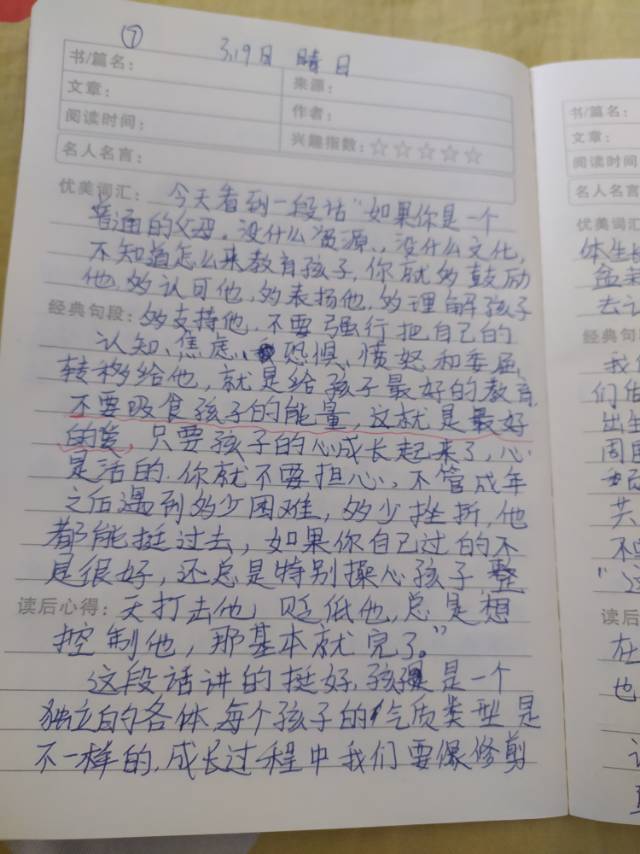 ⑦ 3.19日 晴 日
书/篇名： 来源：
文章： 作者：
阅读时间： 兴趣指数：☆☆☆☆☆
名人名言：
优美词汇： 今天看到一段话“如果你是一个
普通的父母，没什么资源，没什么文化，
不知道怎么来教育孩子，你就多鼓励
他，多认可他，多表扬他，多理解孩子
经典句段：多支持他，不要强行把自己的
认知、焦虑、恐惧、愤怒和委屈，
转移给他，就是给孩子最好的教育，
不要吸食孩子的能量，这就是最好
的爱，只要孩子的心成长起来了，心
是活的，你就不要担心，不管成年
之后遇到多少困难，多少挫折，他
都能挺过去，如果你自己过的不
是很好，还总是特别操心孩子，整
读后心得：天打击他，贬低他，总是想
控制他，那基本就完了。”
这段话讲的挺好，孩子是一个
独立的各体，每个孩子的气质类型是
不一样的，成长过程中我们要像修剪
书/篇名：
文章：
阅读时间
名人名言
优美词汇
体生长
去
经典句段
我们
们
出生
周围
共
不
“这
读后
在
也